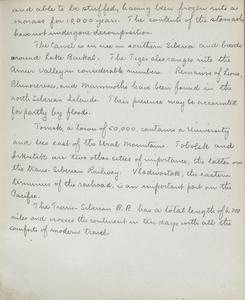 and able to be stuffed, having been frozen into a
morass for 10,000 years. The contents of the stomach
have not undergone decomposition.
The Camel is in use in southern Siberia and breeds
around Lake Baikal. The Tiger also ranges into the
Amur Valley in considerable numbers. Remains of lions,
Rhinoceroses, and Mammoths have been found in the
north Siberian islands. Their presence may be accounted
for partly by floods.
Tomsk, a town of 50,000, contains a University
and lies east of the Ural Mountains. Tobolsk and
Irkutsk are two other cities of importance, the latter on
the Trans-Siberian Railway. Vladivostok, the eastern
terminus of the railroad, is an important port on the
Pacific.
The Trans-Siberian R.R. has a total length of
miles and crosses the continent in ten days with all the
comforts of modern travel.